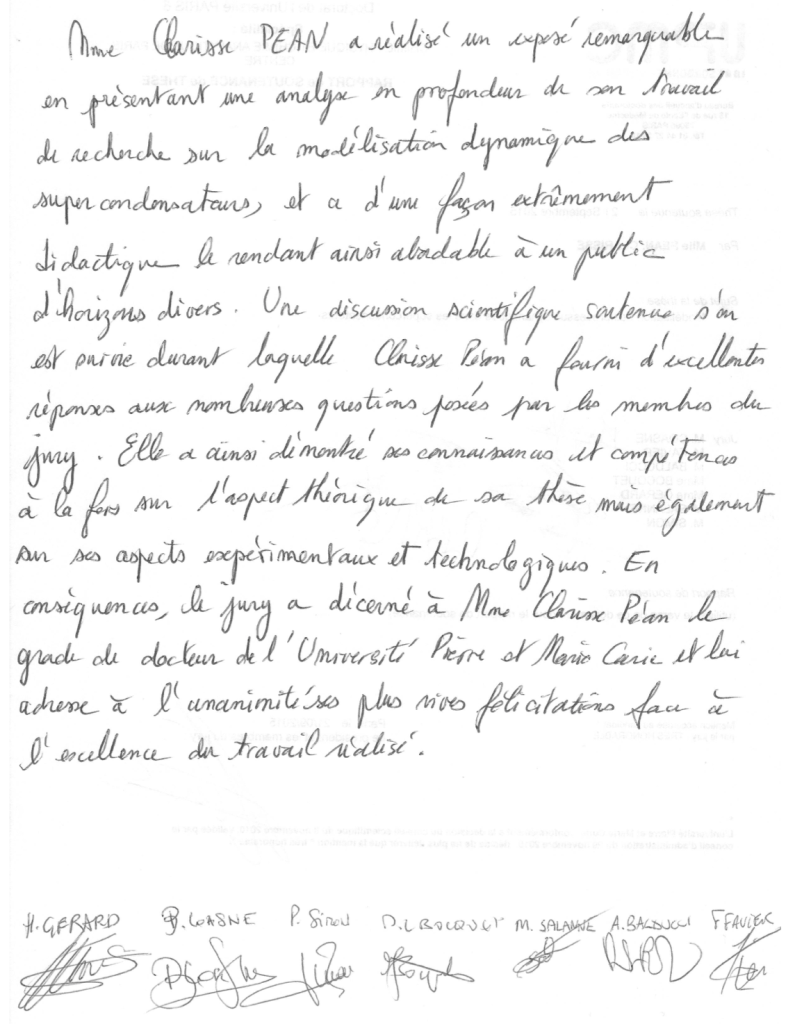 Mme Clarisse PEAN a réalisé un exposé remarquable
en présentant une analyse en profondeur de son travail
de recherche sur la modélisation dynamique des
supercondensateurs, et a d'une façon extrêmement
didactique le rendant ainsi abordable à un public
d'horizons divers. Une discussion scientifique soutenue s'en
est suivie durant laquelle Clarisse Péan a fourni d'excellentes
réponses aux nombreuses questions posées par les membres du
jury. Elle a ainsi démontré ses connaissances et compétences
à la fois sur l'aspect théorique de sa thèse mais également
sur ses aspects expérimentaux et technologiques. En
conséquences, le jury a décerné à Mme Clarisse Péan le
grade de docteur de l'Université Pierre et Marie Curie et lui
adresse à l'unanimité ses plus vives félicitations face à
l'excellence du travail réalisé.
H. GERARD B. LASNE P. Simon M. SALANNE A. BALDUCCI F FAVIER